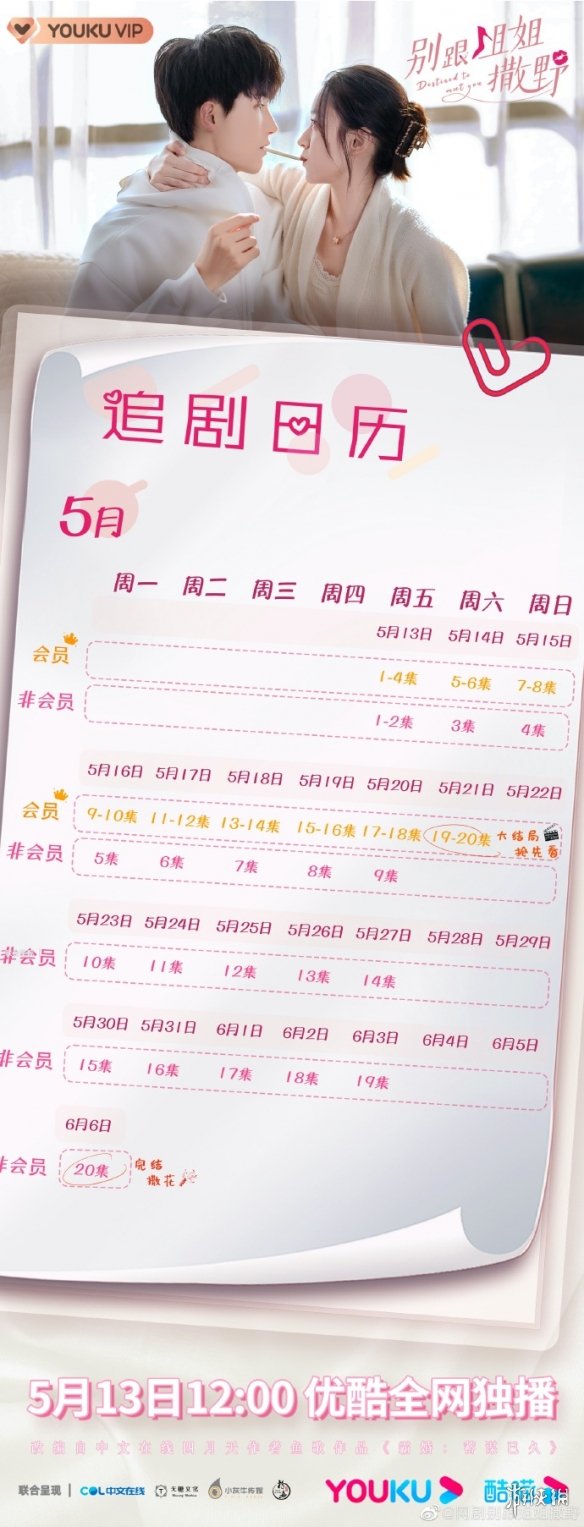 YOUKU VIP
别跟姐姐
撒野
Destined to
meet you
追剧日历
5月
周一 周二 周三 周四 周五 周六 周日
5月13日 5月14日 5月15日
会员 1-4集 5-6集 7-8集
非会员 1-2集 3集 4集
5月16日 5月17日 5月18日 5月19日 5月20日 5月21日 5月22日
会员 9-10集 11-12集 13-14集 15-16集 17-18集 19-20集 大结局
抢先看
非会员 5集 6集 7集 8集 9集
5月23日 5月24日 5月25日 5月26日 5月27日 5月28日 5月29日
非会员 10集 11集 12集 13集 14集
5月30日 5月31日 6月1日 6月2日 6月3日 6月4日 6月5日
非会员 15集 16集 17集 18集 19集
6月6日
非会员 20集 完结
撒花
5月13日12:00 优酷全网独播
改编自中文在线四月天作者鱼歌作品《霸婚：蓄谋已久》
联合呈现 COL中文在线 小灰尘传媒 YOUKU 酷喵